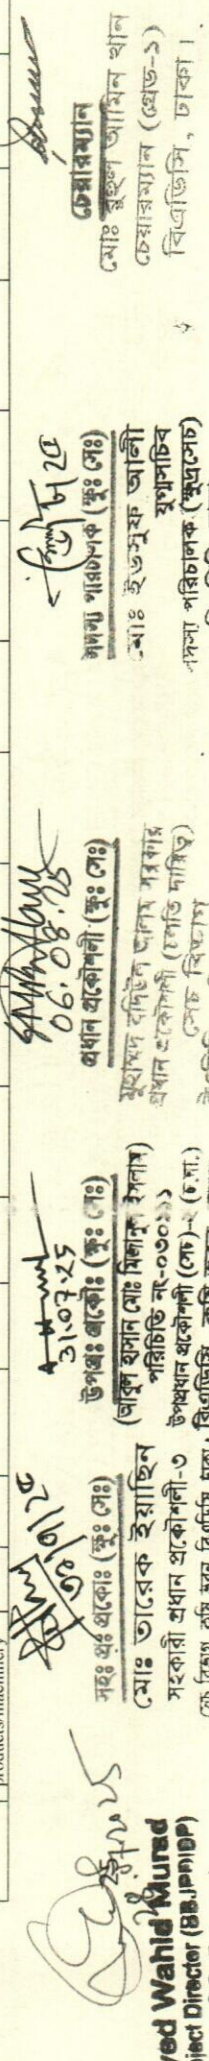 products/machinery
yed Wahid Murad
ject Director (BBJPRIDP)
৩১/৭/২৫
সহঃ প্রঃ প্রকৌঃ (ক্ষুঃ সেঃ)
মোঃ তারেক ইয়াছিন
সহকারী প্রধান প্রকৌশলী-৩
31.07.25
উপপ্রঃ প্রকৌঃ (ক্ষুঃ সেঃ)
(আবুল হাসান মোঃ মিজানুল ইসলাম)
পরিচিতি নং-০৩০২১১
উপপ্রধান প্রকৌশলী (সেচ)-২ (চ.দা.)
06.08.25
প্রধান প্রকৌশলী (ক্ষুঃ সেঃ)
মুহাম্মদ বদিউল আলম সরকার
প্রধান প্রকৌশলী (চলতি দায়িত্ব)
সেচ বিভাগ
সদস্য পরিচালক (ক্ষুঃ সেঃ)
মোঃ ইউসুফ আলী
যুগ্মসচিব
সদস্য পরিচালক (ক্ষুদ্রসেচ)
চেয়ারম্যান
মোঃ রুহুল আমিন খান
চেয়ারম্যান (গ্রেড-১)
বিএডিসি, ঢাকা।